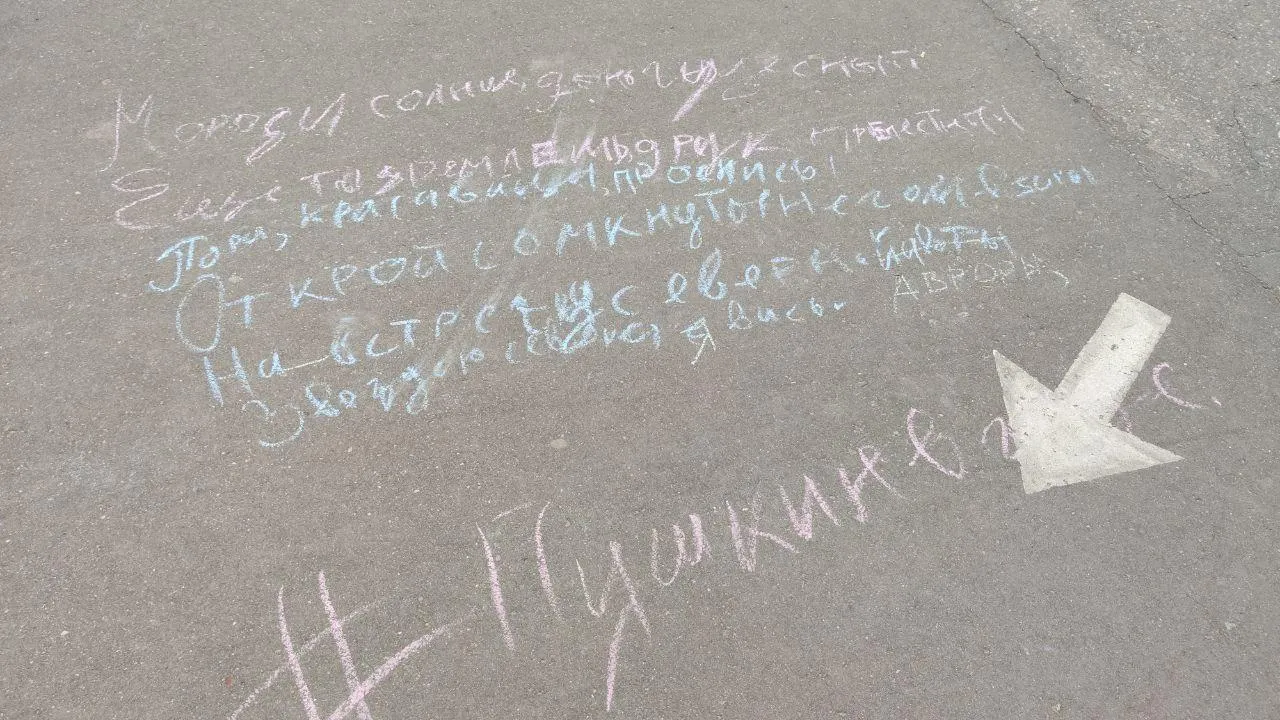 Мороз и солнце, день чудесный
Еще ты дремлешь друк прелестный
Пора, красавица, проснись!
Открой сомкнуты негой взоры
На встречу северной
Авроры,
Звездою севера явись.
#Пушкин в